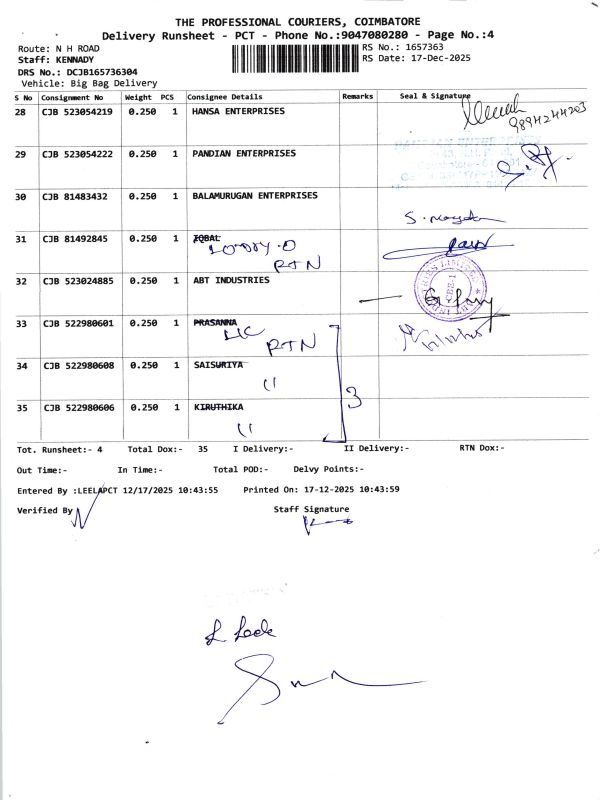 THE PROFESSIONAL COURIERS, COIMBATORE
Delivery Runsheet - PCT - Phone No.:9047080280 - Page No.:4
Route: N H ROAD
RS No.: 1657363
Staff: KENNADY
RS Date: 17-Dec-2025
DRS No.: DCJB165736304
Vehicle: Big Bag Delivery
S No Consignment No Weight PCS Consignee Details Remarks Seal & Signature
28 CJB 523054219 0.250 1 HANSA ENTERPRISES
9894244203
29 CJB 523054222 0.250 1 PANDIAN ENTERPRISES
30 CJB 81483432 0.250 1 BALAMURUGAN ENTERPRISES
31 CJB 81492845 0.250 1 IQBAL
RTN
32 CJB 523024885 0.250 1 ABT INDUSTRIES
33 CJB 522980601 0.250 1 PRASANNA
RTN
34 CJB 522980608 0.250 1 SAISURIYA
"
3
35 CJB 522980606 0.250 1 KIRUTHIKA
"
Tot. Runsheet:- 4 Total Dox:- 35 I Delivery:- II Delivery:- RTN Dox:-
Out Time:- In Time:- Total POD:- Delvy Points:-
Entered By :LEELAPCT 12/17/2025 10:43:55 Printed On: 17-12-2025 10:43:59
Verified By Staff Signature